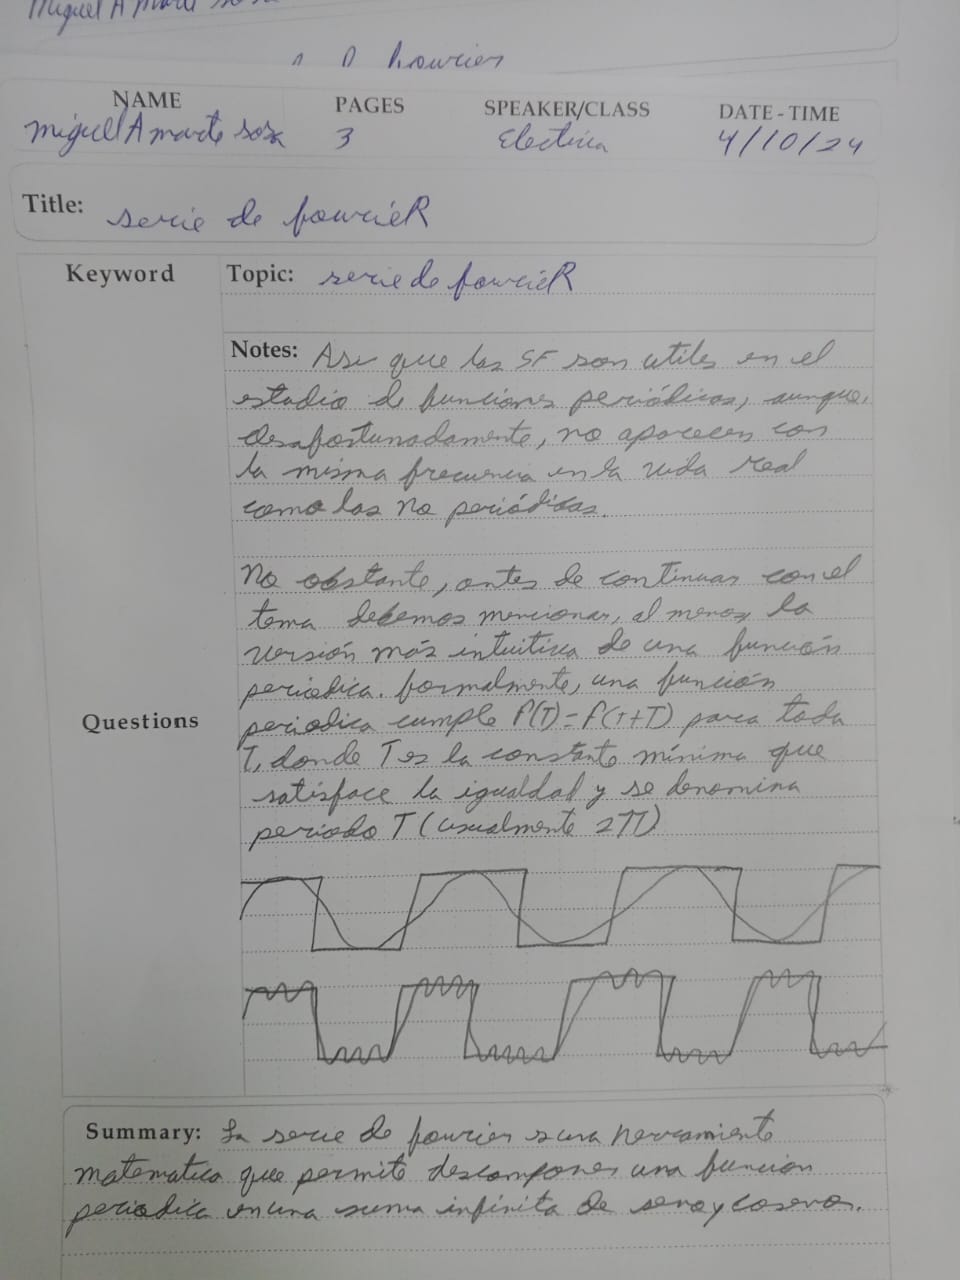 Miguel A Marte Sosa
fourier
NAME PAGES SPEAKER/CLASS DATE - TIME
Miguel A Marte Sosa 3 Electiva 4/10/24
Title: serie de fourieR
Keyword Topic: serie de fourieR
Notes: Asi que las SF son utiles en el
estudio de funciones periódicas, aunque,
desafortunadamente, no aparecen con
la misma frecuencia en la vida real
como las no periódicas.
No obstante, antes de continuar con el
tema debemos mencionar, al menos, la
versión más intuitiva de una función
periodica. formalmente, una función
Questions periodica cumple f(T)=f(T+T) para toda
T, donde T es la constante mínima que
satisface la igualdad y se denomina
periodo T (usualmente 2π)
Summary: La serie de fourier s una herramienta
matematica que permite descomponer una funcion
periodica en una suma infinita de seno y coseno.